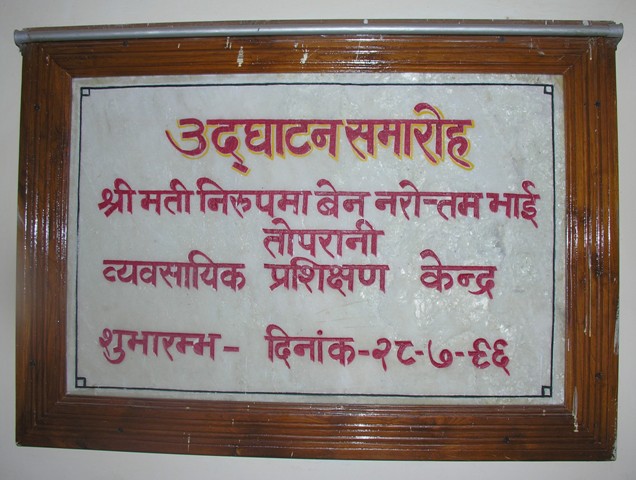 उद्घाटन समारोह
श्री मती निरुपमा बेन नरोत्तम भाई
तोपरानी
व्यवसायिक प्रशिक्षण केन्द्र
शुभारम्भ - दिनांक-२८-७-९६